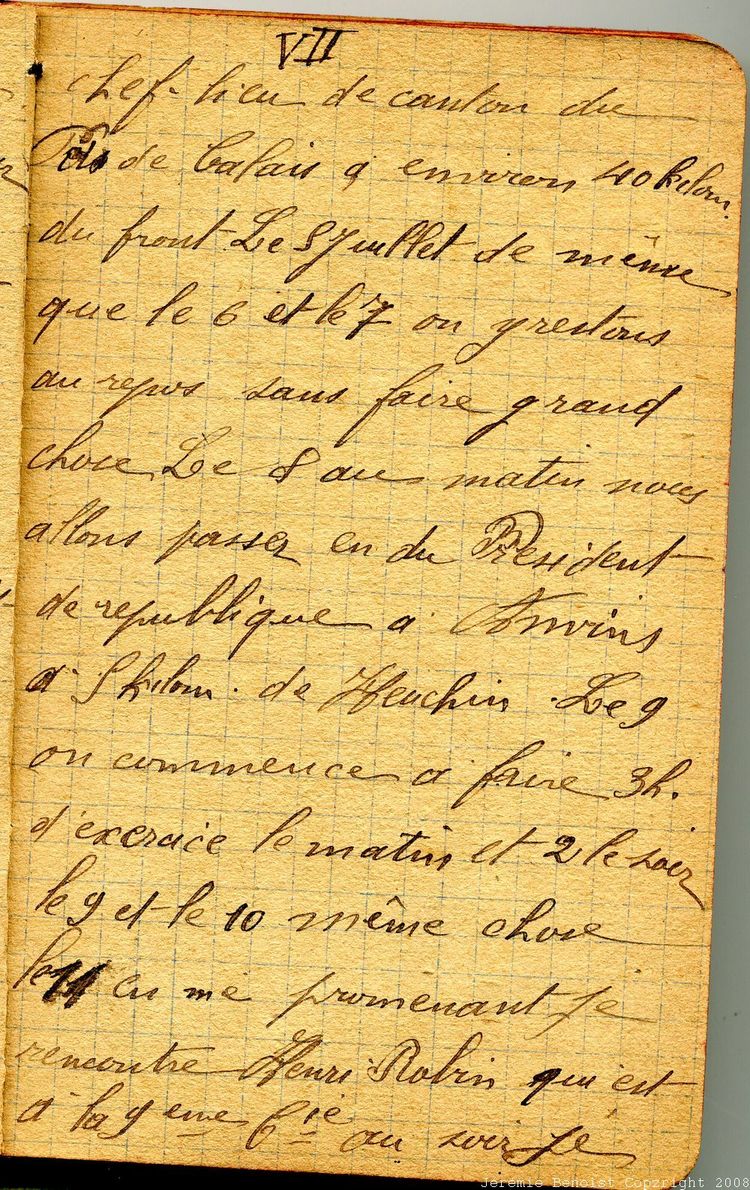 VII
chef-lieu de canton du
Pas de Calais a environ 40 kilom.
du front Le 5 Juillet de même
que le 6 et le 7 on y restons
au repos sans faire grand
chose Le 8 au matin nous
allons passer en du President
de republique a Anvins
a 5 kilom. de Heuchin. Le 9
on commence a faire 3h.
d'exercice le matin et 2 le soir
le 9 et le 10 même chose
le 11 en me promenant je
rencontre Henri Robin qui est
a la 9eme Cie au soir je
Jeremie Benoist Copyright 2008